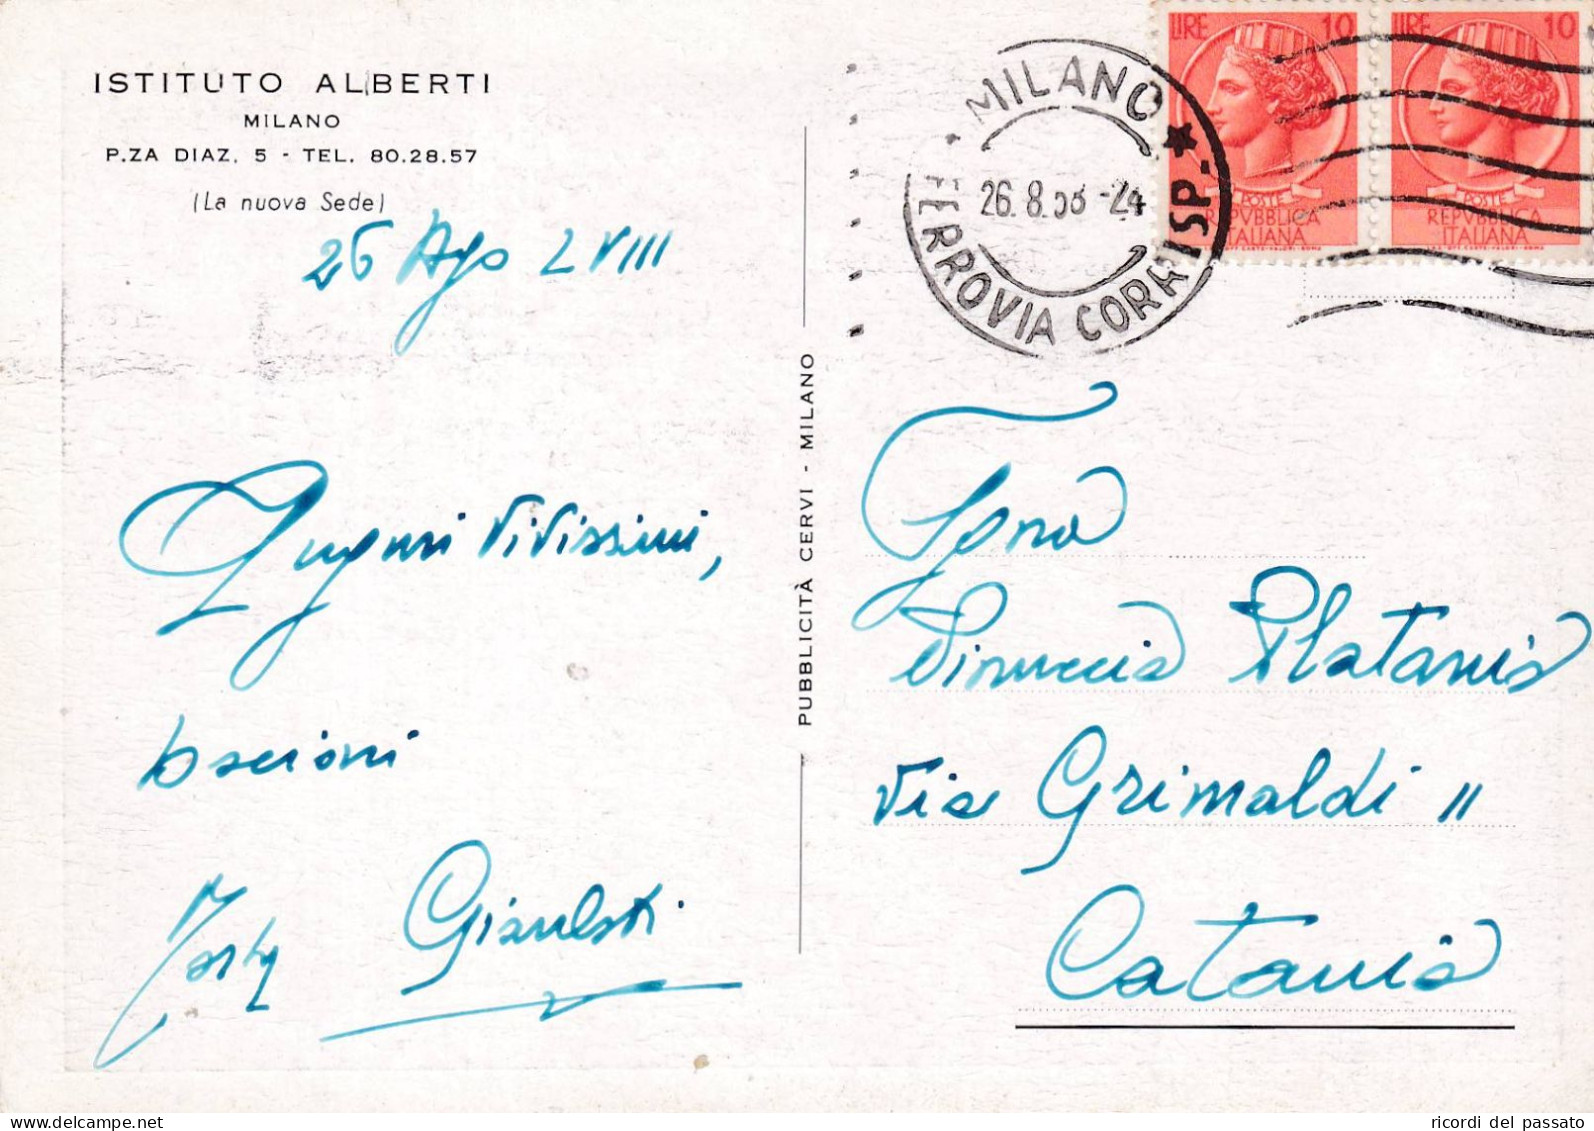 ISTITUTO ALBERTI
MILANO
P.ZA DIAZ, 5 - TEL. 80.28.57
(La nuova Sede)
26 Ago LVIII
Auguri vivissimi,
bacioni
Gianlati
PUBBLICITÀ CERVI - MILANO
MILANO
FERROVIA CORRISP.
26.8.58-24
LIRE 10
POSTE
REPVBBLICA
ITALIANA
LIRE 10
POSTE
REPVBBLICA
ITALIANA
Pinuccia Platania
via Grimaldi 11
Catania
ricordi del passato